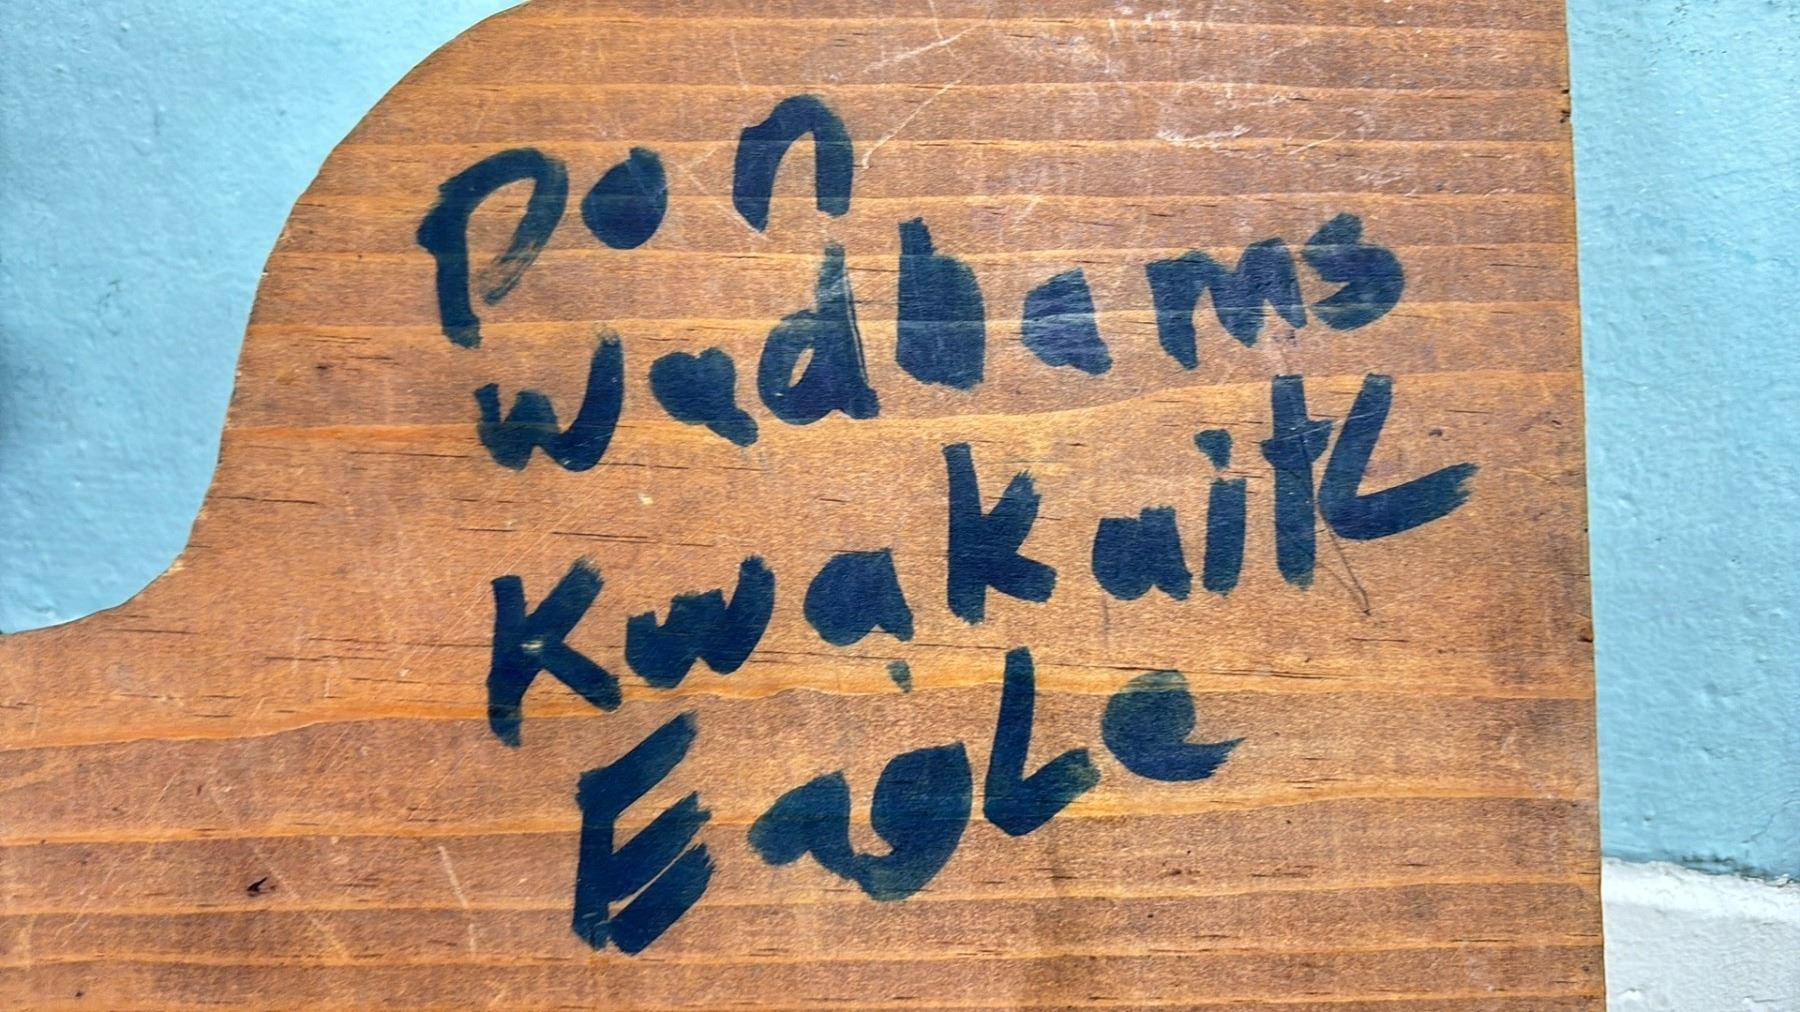 Don
Wadhams
KwaKaitL
EagLe